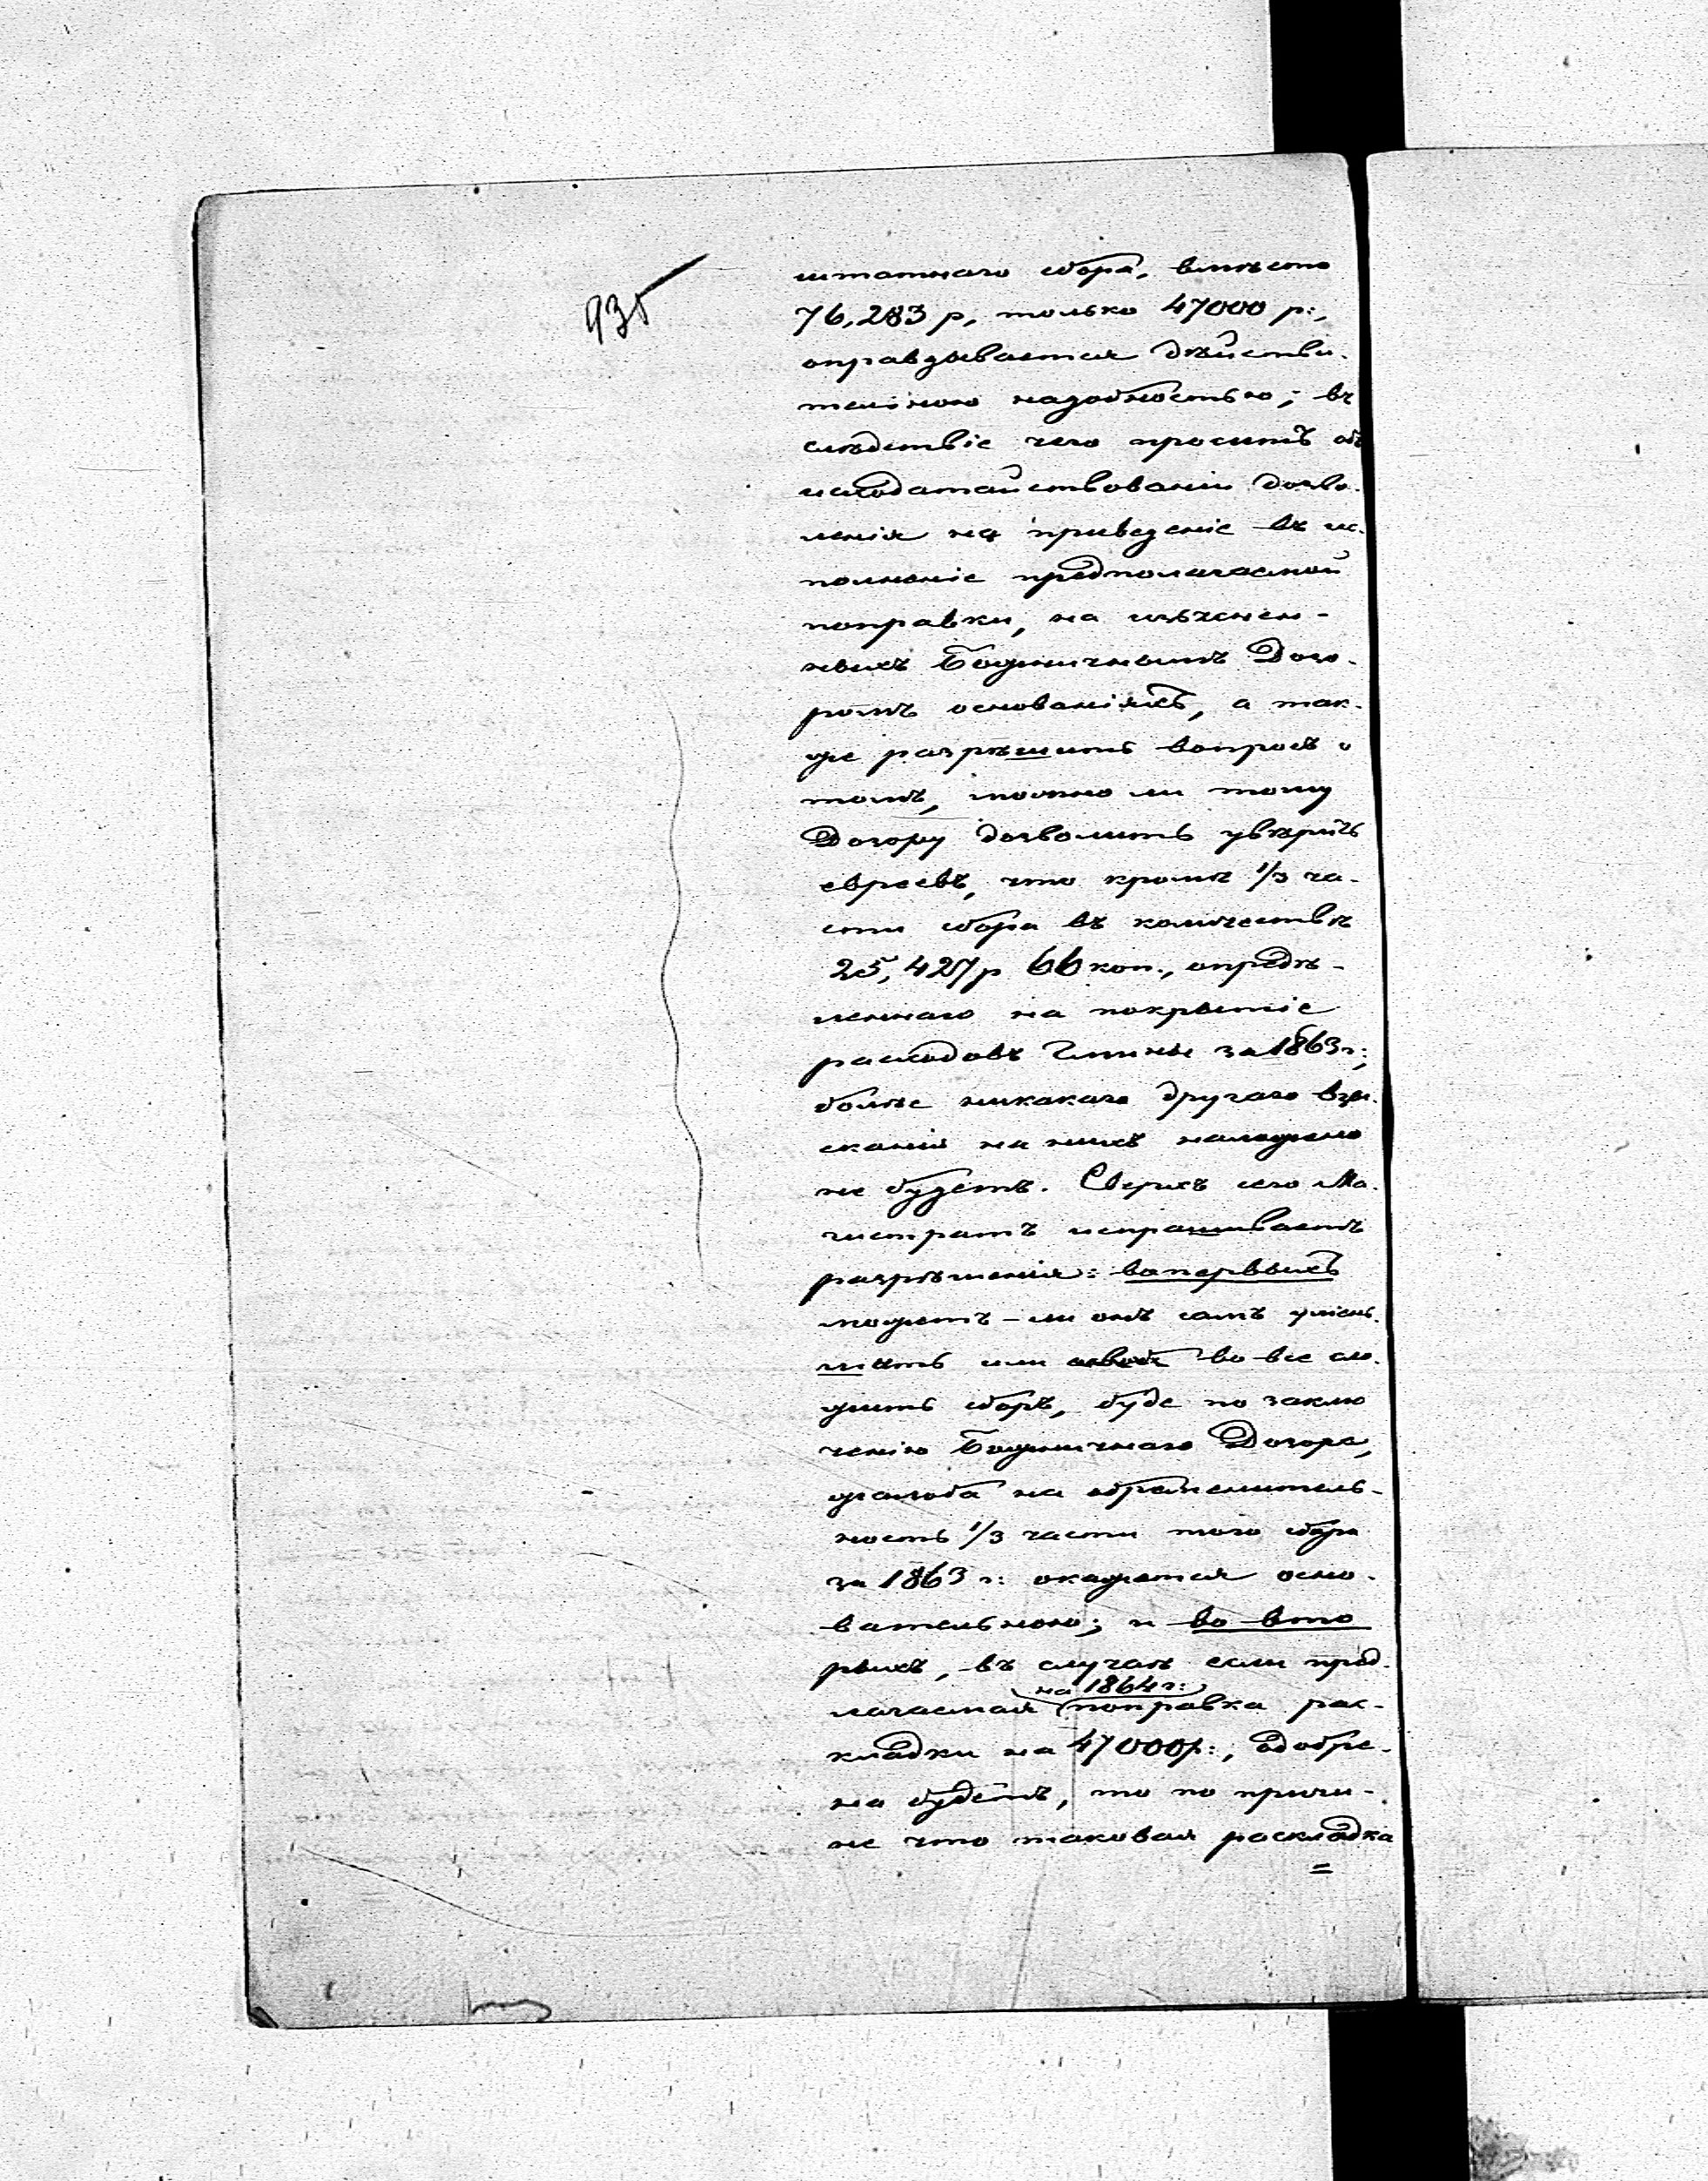 935
штатнаго сбора, вмѣсто
76,283 р, только 47000 р:,
оправдывается дѣйстви-
тельною надобностью; въ
слѣдствіе чего проситъ объ
исходатайствованіи дозво-
ленія на приведеніе въ ис-
полненіе предполагаемой
поправки, на изъяснен-
ныхъ Божничнымъ Дозо-
ромъ основаніяхъ, а так-
же разрѣшить вопросъ о
томъ, можно ли тому
Дозору дозволить увѣрить
евреевъ, что кромѣ 1/3 ча-
сти сбора въ количествѣ
25,427 р 66 коп., опредѣ-
леннаго на покрытіе
расходовъ Гмины за 1863 г:,
болѣе никакаго другаго взы-
сканія на нихъ наложено
не будетъ. Сверхъ сего Ма-
гистратъ испрашиваетъ
разрѣшенія: вопервыхъ
можетъ-ли онъ самъ умень-
шать или во все сло-
жить сборъ, буде по заклю
ченію Божничнаго Дозора,
жалоба на обременитель-
ность 1/3 части того сбора
за 1863 г: окажется осно-
вательною; и во вто
рыхъ, въ случаѣ если пред-
на 1864 г:
лагаемая поправка рас-
кладки на 47000 р:, одобре-
на будетъ, то по причи-
не что таковая раскладка
=